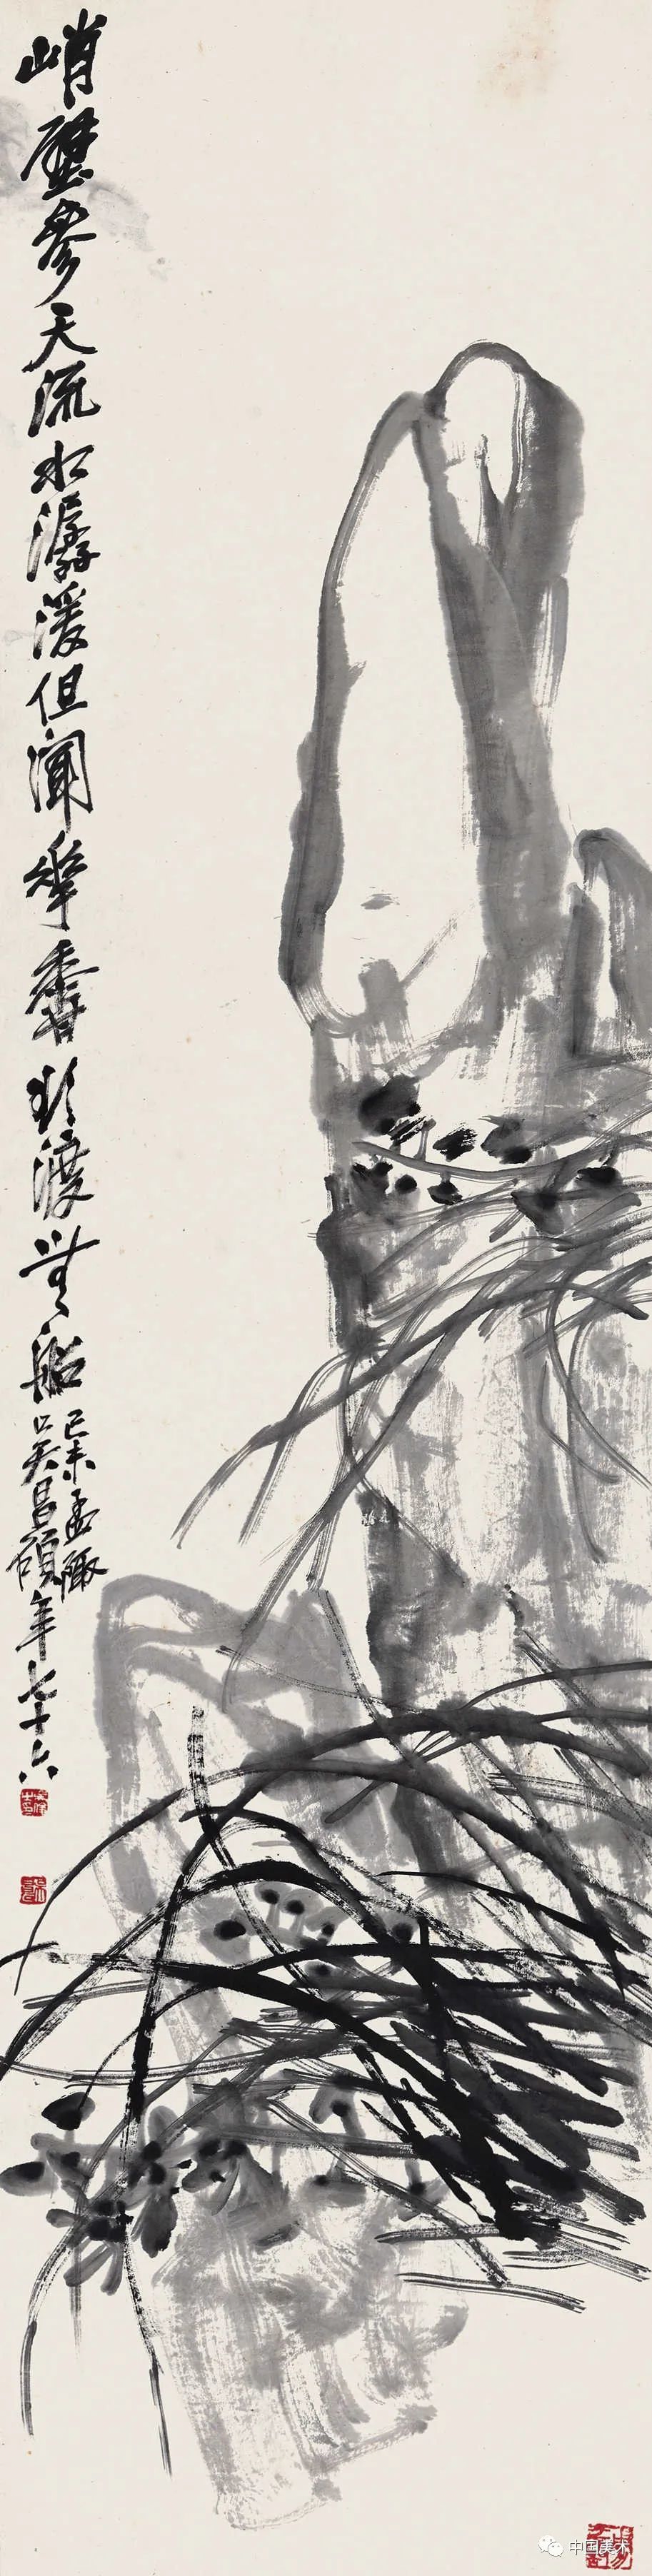 峭壁参天流水潺湲但闻华香欲渡无船
己未孟陬
吴昌硕年七十六
中国美术